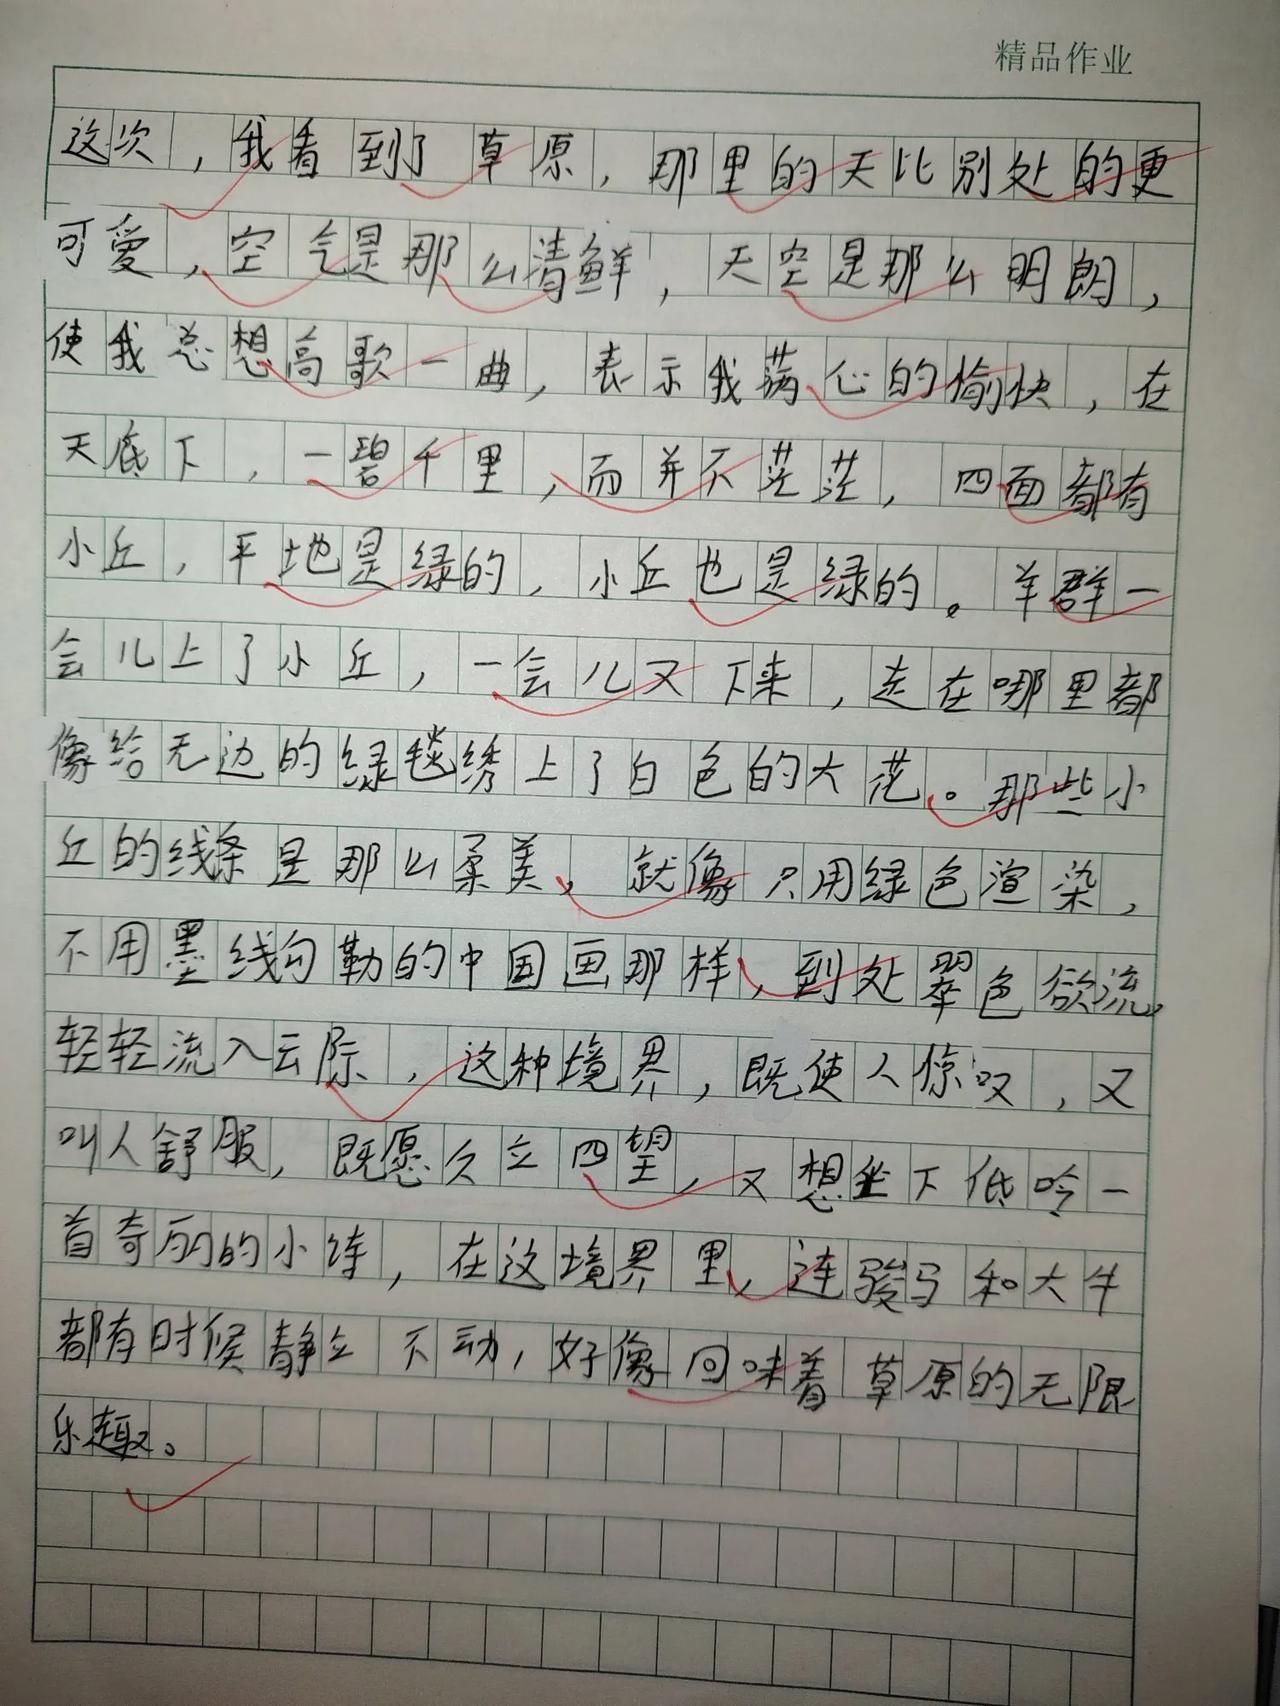 精品作业
这次，我看到了草原，那里的天比别处的更
可爱，空气是那么清鲜，天空是那么明朗，
使我总想高歌一曲，表示我满心的愉快，在
天底下，一碧千里，而并不茫茫，四面都有
小丘，平地是绿的，小丘也是绿的。羊群一
会儿上了小丘，一会儿又下来，走在哪里都
像给无边的绿毯绣上了白色的大花。那些小
丘的线条是那么柔美，就像只用绿色渲染，
不用墨线勾勒的中国画那样，到处翠色欲流，
轻轻流入云际，这种境界，既使人惊叹，又
叫人舒服，既愿久立四望，又想坐下低吟一
首奇丽的小诗，在这境界里，连骏马和大牛
都有时候静立不动，好像回味着草原的无限
乐趣。